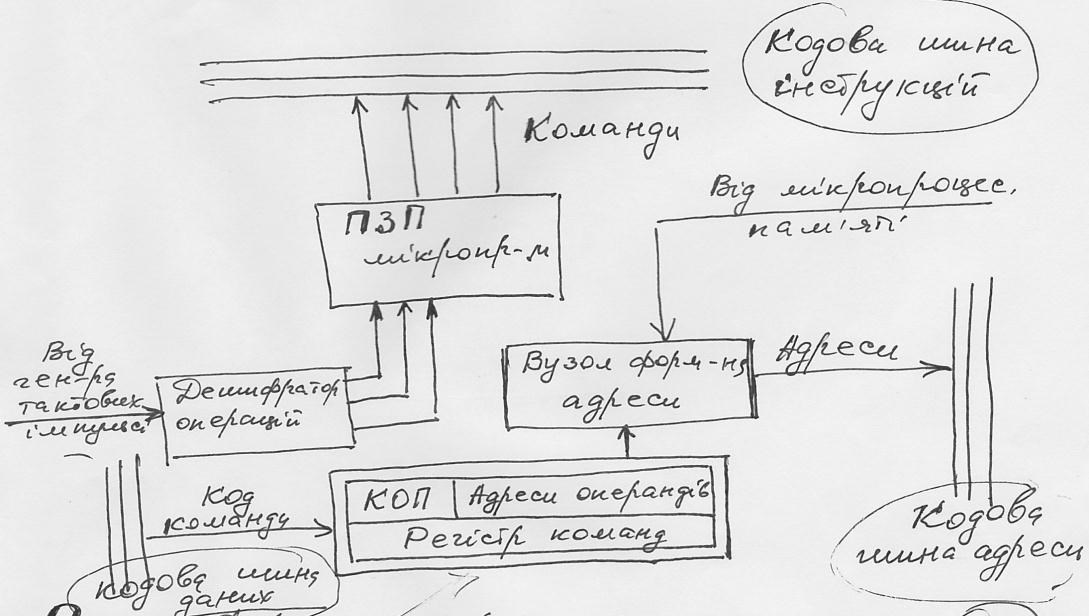 Кодова шина
інструкцій
Команди
Від мікропроцес.
пам'яті
ПЗП
мікропр-м
Від
ген-ра
тактових
імпульсі
Дешифратор
операцій
Вузол форм-ня
адреси
Адреси
Код
команди
КОП Адреси операндів
Регістр команд
Кодова
шина адреси
Кодова шина
даних